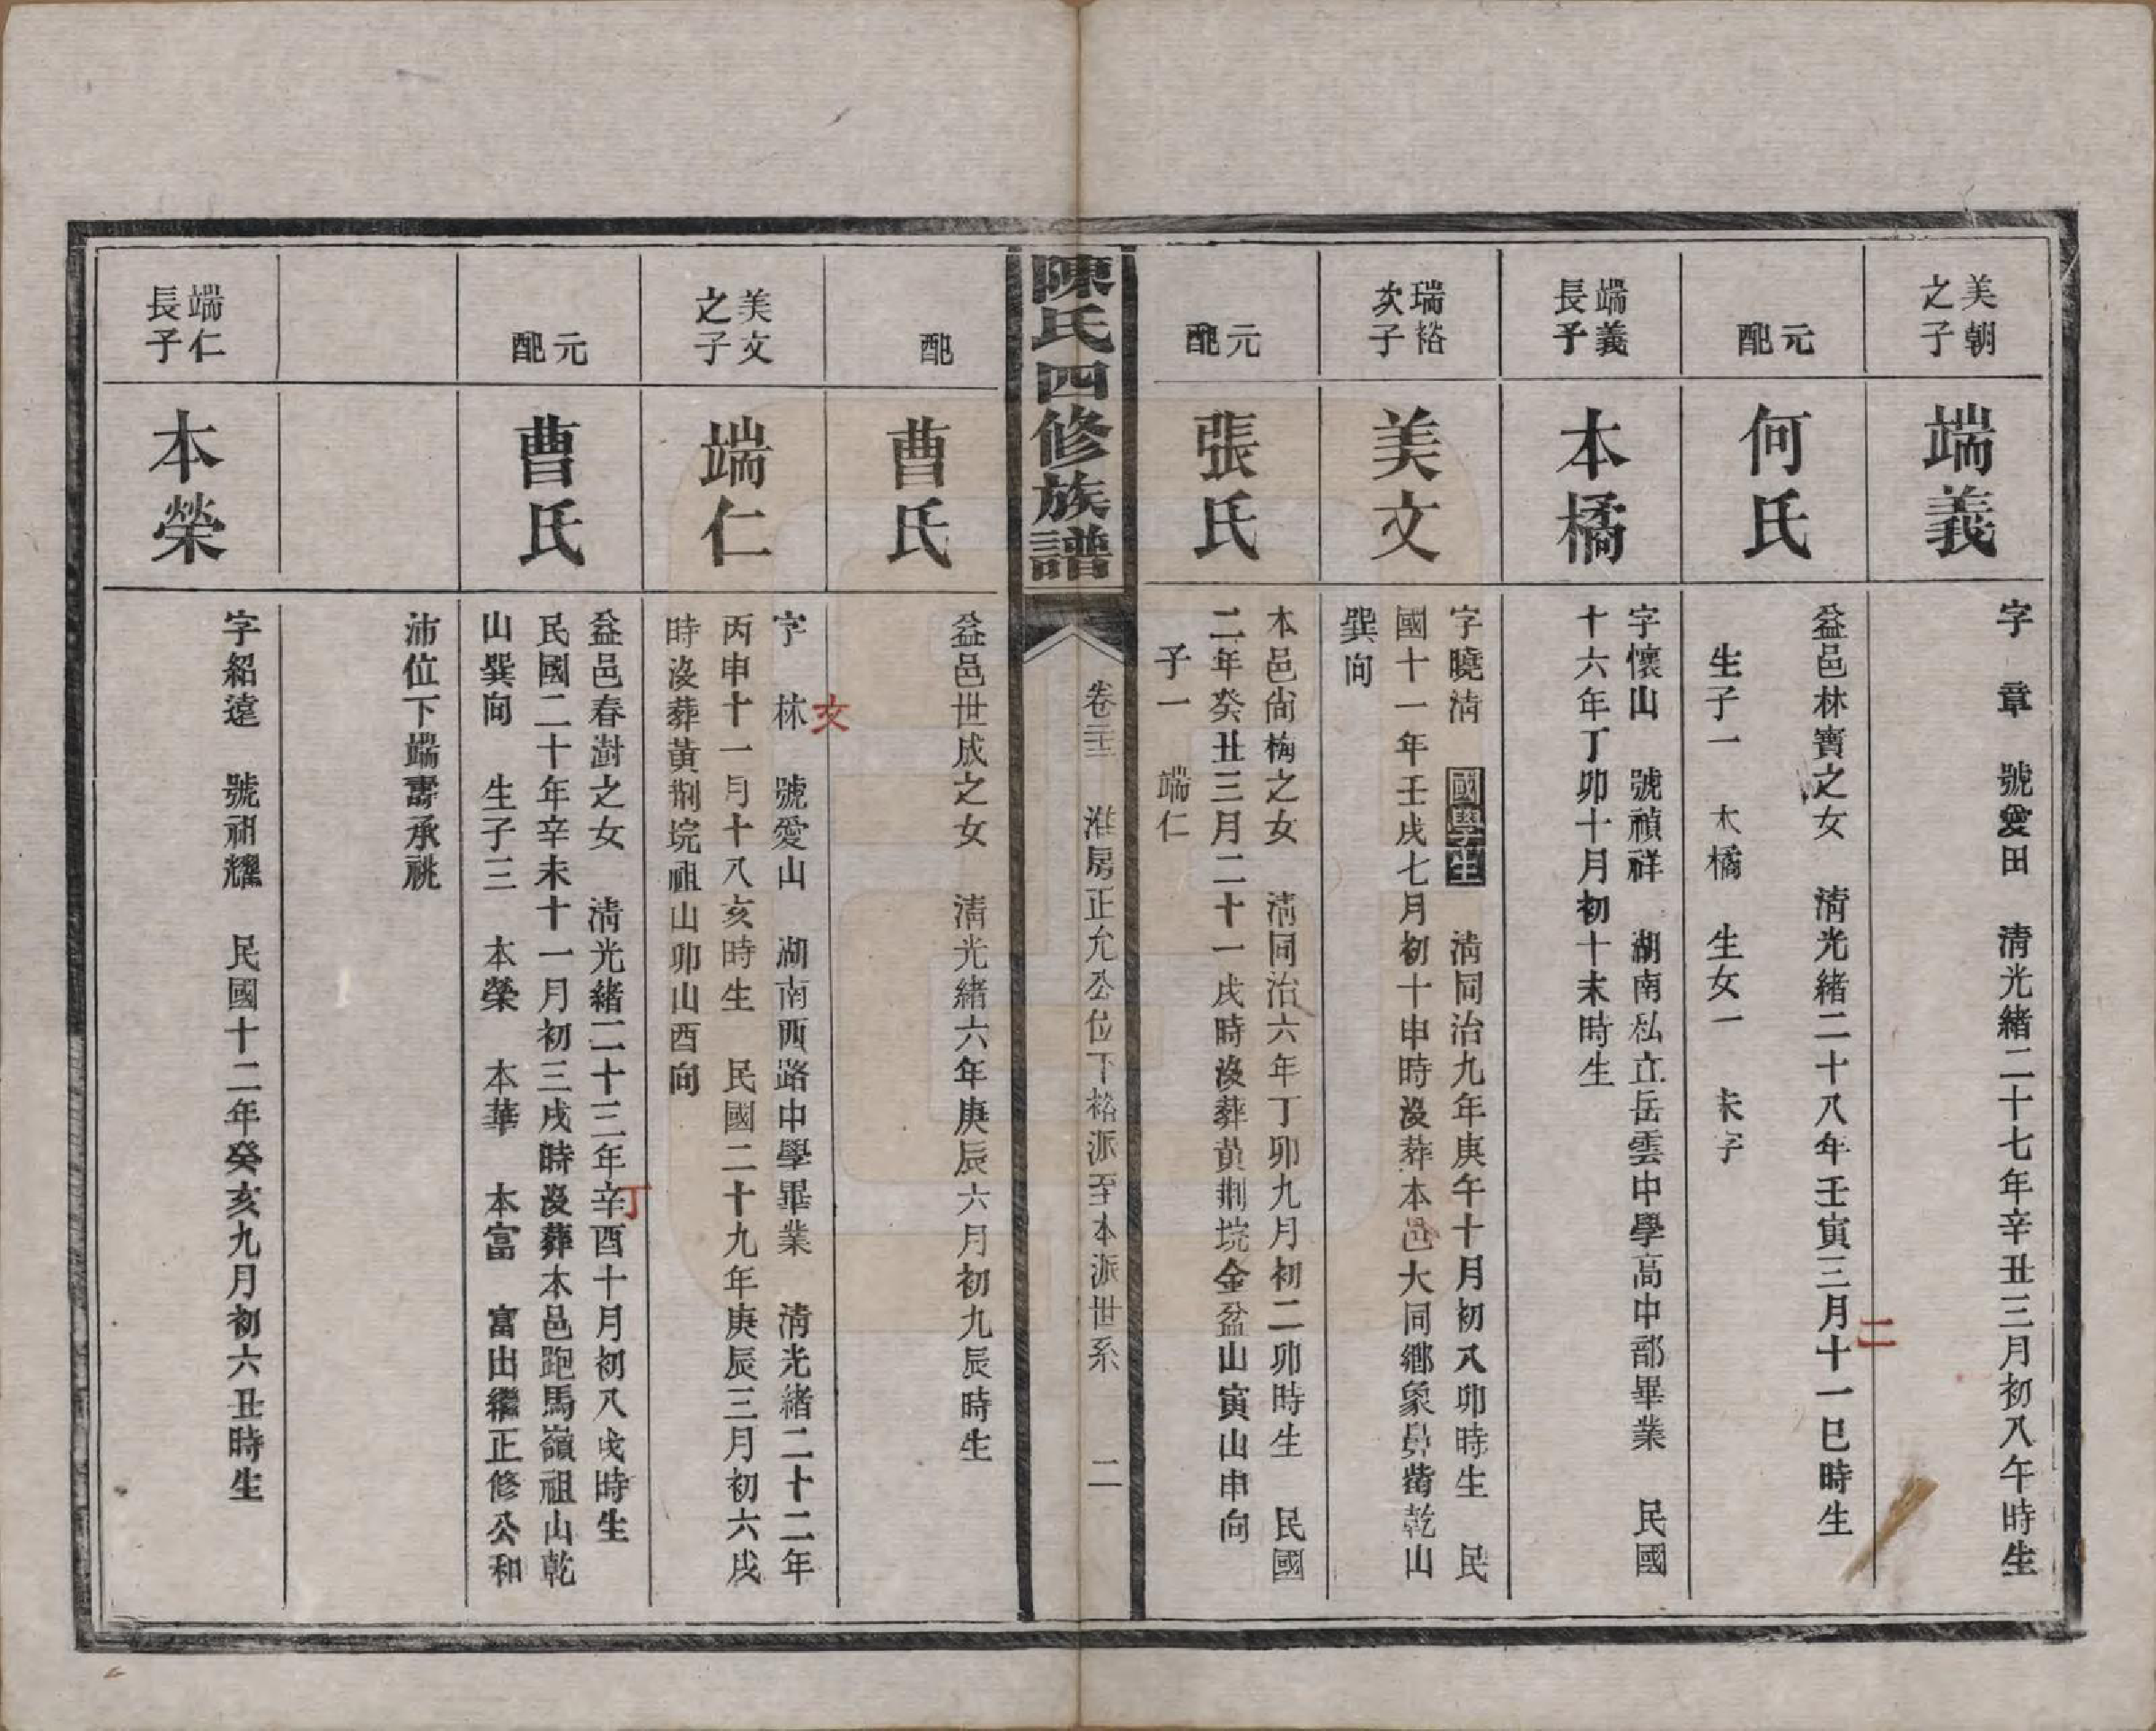 美朝
之子
端義
字　章　號愛田　清光緒二十七年辛丑三月初八午時生
元
配
何氏
益邑林寶之女　清光緒二十八年壬寅三月十一巳時生
二
生子一　本橘　生女一　未字
端義
長子
本橘
字懷山　號禎祥　湖南私立岳雲中學高中部畢業　民國
十六年丁卯十月初十未時生
瑞裕
次子
美文
字曉清　國學生　清同治九年庚午十月初八卯時生　民
國十一年壬戌七月初十申時沒葬本邑大同鄉象鼻觜乾山
巽向
元
配
張氏
本邑尙梅之女　清同治六年丁卯九月初二卯時生　民國
二年癸丑三月二十一戌時沒葬黃荆垸金盆山寅山申向
子一　端仁
陳氏四修族譜
卷三　淮房正允公位下裕派至本派世系　二
配
曹氏
益邑世成之女　清光緒六年庚辰六月初九辰時生
美文
之子
端仁
字　林　號愛山　湖南西路中學畢業　清光緒二十二年
文
丙申十一月十八亥時生　民國二十九年庚辰三月初六戌
時沒葬黃荆垸祖山卯山酉向
元
配
曹氏
益邑春澍之女　清光緒二十三年辛酉十月初八戌時生
丁
民國二十年辛未十一月初三戌時沒葬本邑跑馬嶺祖山乾
山巽向　生子三　本榮　本華　本富　富出繼正修公和
沛位下端壽承祧
端仁
長子
本榮
字紹遠　號祖耀　民國十二年癸亥九月初六丑時生